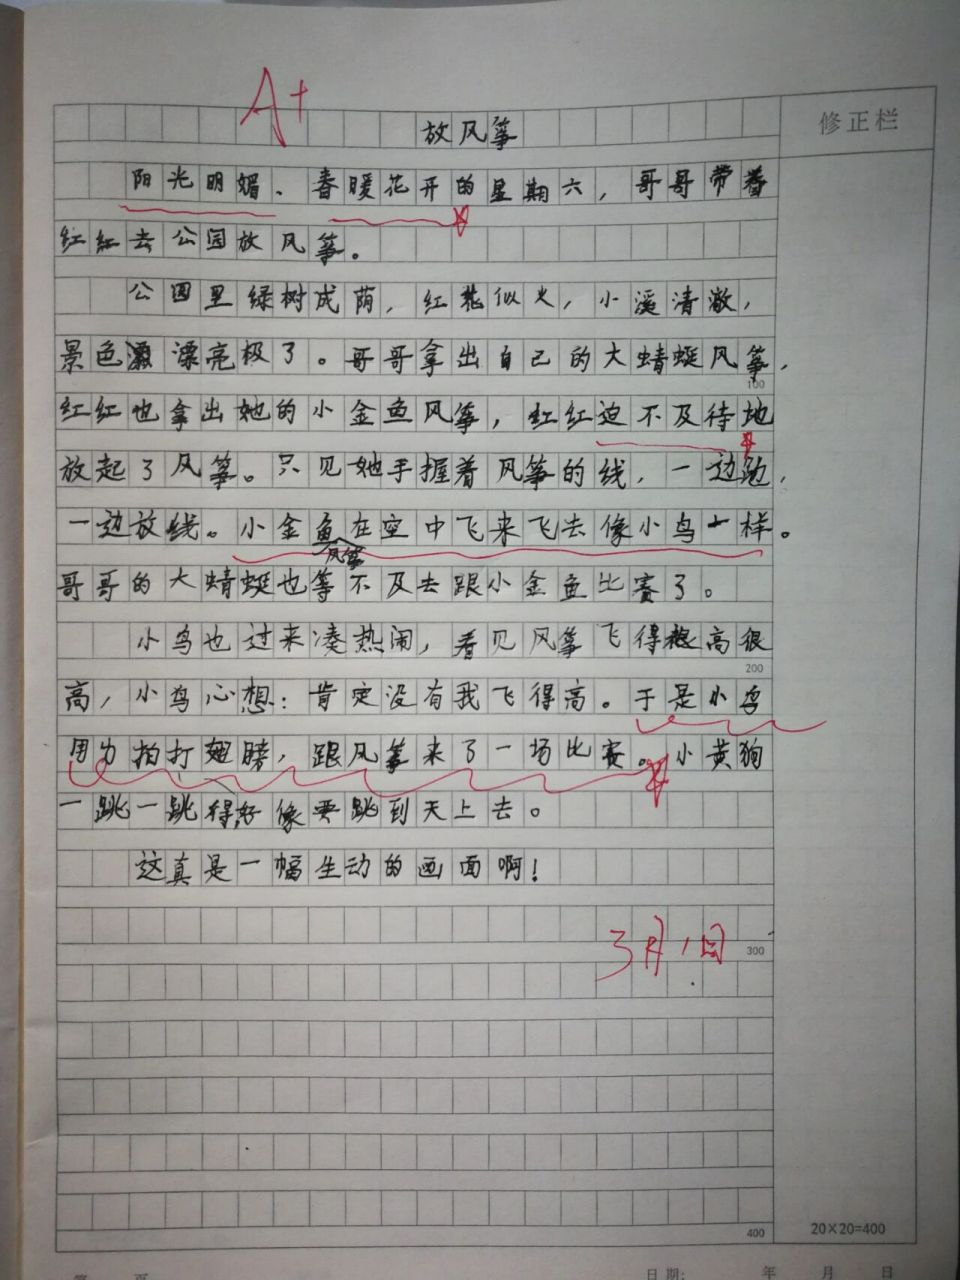 A+
修正栏
放风筝
阳光明媚、春暖花开的星期六，哥哥带着
红红去公园放风筝。
公园里绿树成荫，红花似火，小溪清澈，
景色漂亮极了。哥哥拿出自己的大蜻蜓风筝，
100
红红也拿出她的小金鱼风筝，红红迫不及待地
放起了风筝。只见她手握着风筝的线，一边跑，
一边放线。小金鱼在空中飞来飞去像小鸟一样。
风筝
哥哥的大蜻蜓也等不及去跟小金鱼比赛了。
小鸟也过来凑热闹，看见风筝飞得很高很
200
高，小鸟心想：肯定没有我飞得高。于是小鸟
用力拍打翅膀，跟风筝来了一场比赛。小黄狗
一跳一跳得好像要跳到天上去。
这真是一幅生动的画面啊！
3月1日
300
400
20×20=400
第 页
日期: 年 月 日